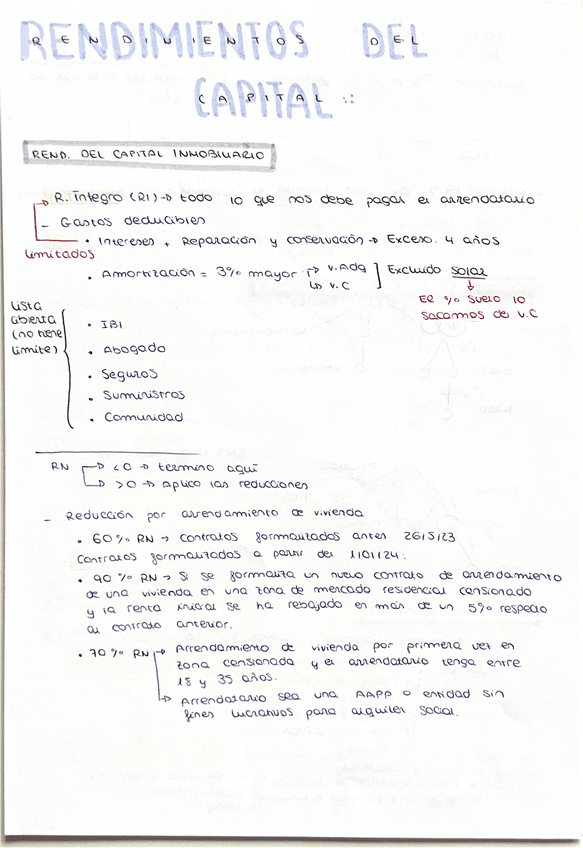 RENDIMIENTOS DEL
CAPITAL ::
REND. DEL CAPITAL INMOBILIARIO
R. íntegro (RI) → todo lo que nos debe pagar el arrendatario
- Gastos deducibles
• Intereses + Reparación y conservación → Exceso. 4 años
limitados
• Amortización = 3% mayor → V.Adq
→ V.C
Excluido solar
El % suelo lo
sacamos del V.C
Lista
abierta
(no tiene
límite)
• IBI
• Abogado
• Seguros
• Suministros
• Comunidad
RN → <0 → termino aquí
→ >0 → Aplico las reducciones
- Reducción por arrendamiento de vivienda
• 60% RN → Contratos formalizados antes 26/5/23
Contratos formalizados a partir del 1/01/24.
• 90% RN → Si se formaliza un nuevo contrato de arrendamiento
de una vivienda en una zona de mercado residencial censionado
y la renta inicial se ha rebajado en más de un 5% respecto
al contrato anterior.
• 70% RN → Arrendamiento de vivienda por primera vez en
zona censionada y el arrendatario tenga entre
18 y 35 años.
→ Arrendatario sea una AAPP o entidad sin
fines lucrativos para alquiler social.